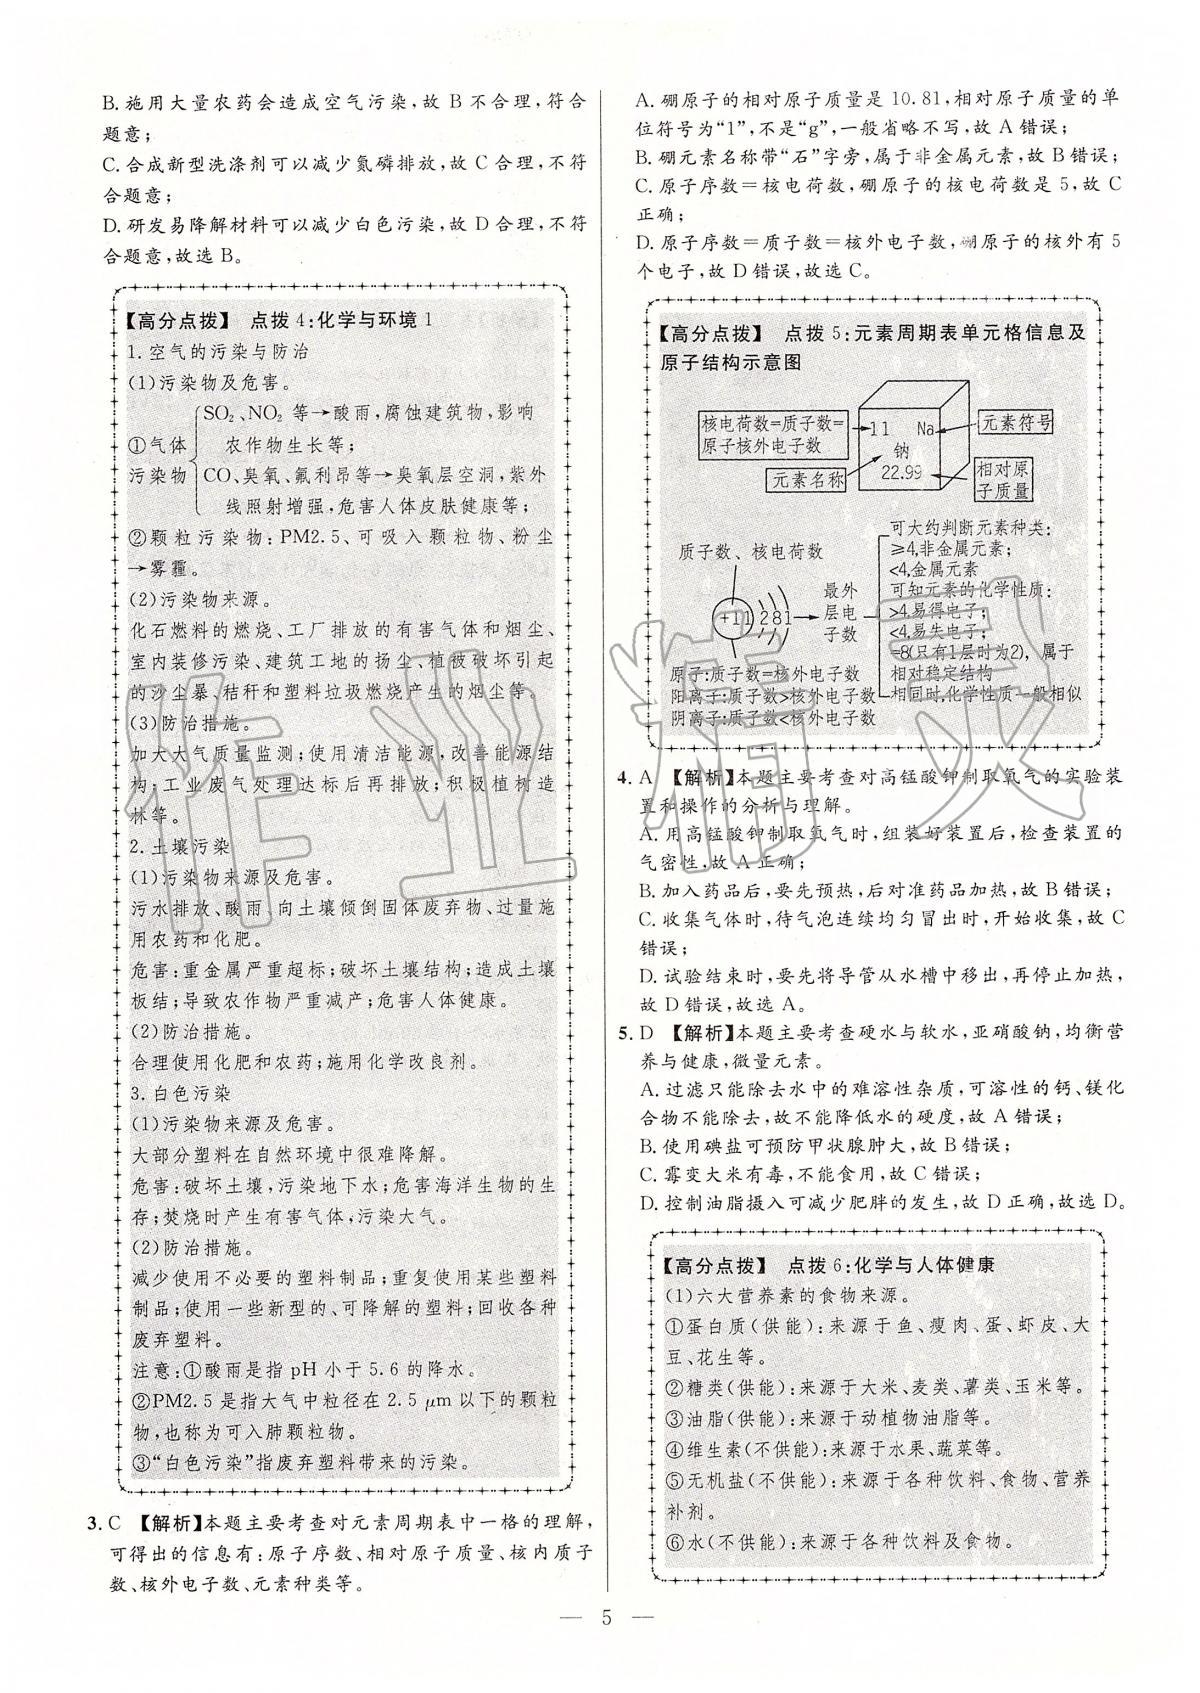 B. 施用大量农药会造成空气污染,故 B 不合理,符合
题意;
C. 合成新型洗涤剂可以减少氮磷排放,故 C 合理,不符
合题意;
D. 研发易降解材料可以减少白色污染,故 D 合理,不符
合题意,故选 B。
【高分点拨】 点拨 4:化学与环境 1
1. 空气的污染与防治
(1)污染物及危害。
①气体
污染物
SO₂、NO₂ 等→酸雨,腐蚀建筑物,影响
农作物生长等;
CO、臭氧、氟利昂等→臭氧层空洞,紫外
线照射增强,危害人体皮肤健康等;
②颗粒污染物:PM2.5、可吸入颗粒物、粉尘
→雾霾。
(2)污染物来源。
化石燃料的燃烧、工厂排放的有害气体和烟尘、
室内装修污染、建筑工地的扬尘、植被破坏引起
的沙尘暴、秸秆和塑料垃圾燃烧产生的烟尘等。
(3)防治措施。
加大大气质量监测;使用清洁能源,改善能源结
构;工业废气处理达标后再排放;积极植树造
林等。
2. 土壤污染
(1)污染物来源及危害。
污水排放、酸雨、向土壤倾倒固体废弃物、过量施
用农药和化肥。
危害:重金属严重超标;破坏土壤结构;造成土壤
板结;导致农作物严重减产;危害人体健康。
(2)防治措施。
合理使用化肥和农药;施用化学改良剂。
3. 白色污染
(1)污染物来源及危害。
大部分塑料在自然环境中很难降解。
危害:破坏土壤,污染地下水;危害海洋生物的生
存;焚烧时产生有害气体,污染大气。
(2)防治措施。
减少使用不必要的塑料制品;重复使用某些塑料
制品;使用一些新型的、可降解的塑料;回收各种
废弃塑料。
注意:①酸雨是指 pH 小于 5.6 的降水。
②PM2.5 是指大气中粒径在 2.5 μm 以下的颗粒
物,也称为可入肺颗粒物。
③“白色污染”指废弃塑料带来的污染。
3. C 【解析】本题主要考查对元素周期表中一格的理解,
可得出的信息有:原子序数、相对原子质量、核内质子
数、核外电子数、元素种类等。
A. 硼原子的相对原子质量是 10.81,相对原子质量的单
位符号为“1”,不是“g”,一般省略不写,故 A 错误;
B. 硼元素名称带“石”字旁,属于非金属元素,故 B错误;
C. 原子序数=核电荷数,硼原子的核电荷数是 5,故 C
正确;
D. 原子序数=质子数=核外电子数,硼原子的核外有 5
个电子,故 D 错误,故选 C。
【高分点拨】 点拨 5:元素周期表单元格信息及
原子结构示意图
核电荷数=质子数=
原子核外电子数
11 Na
钠
22.99
元素符号
元素名称
相对原
子质量
质子数、核电荷数
+11 2 8 1
最外
层电
子数
可大约判断元素种类:
≥4,非金属元素;
<4,金属元素
可知元素的化学性质:
>4,易得电子;
<4,易失电子;
=8(只有1层时为2),属于
相对稳定结构
相同时,化学性质一般相似
原子:质子数=核外电子数
阳离子:质子数>核外电子数
阴离子:质子数<核外电子数
4. A 【解析】本题主要考查对高锰酸钾制取氧气的实验装
置和操作的分析与理解。
A. 用高锰酸钾制取氧气时,组装好装置后,检查装置的
气密性,故 A 正确;
B. 加入药品后,要先预热,后对准药品加热,故 B 错误;
C. 收集气体时,待气泡连续均匀冒出时,开始收集,故 C
错误;
D. 试验结束时,要先将导管从水槽中移出,再停止加热,
故 D 错误,故选 A。
5. D 【解析】本题主要考查硬水与软水,亚硝酸钠,均衡营
养与健康,微量元素。
A. 过滤只能除去水中的难溶性杂质,可溶性的钙、镁化
合物不能除去,故不能降低水的硬度,故 A 错误;
B. 使用碘盐可预防甲状腺肿大,故 B 错误;
C. 霉变大米有毒,不能食用,故 C 错误;
D. 控制油脂摄入可减少肥胖的发生,故 D 正确,故选 D。
【高分点拨】 点拨 6:化学与人体健康
(1)六大营养素的食物来源。
①蛋白质(供能):来源于鱼、瘦肉、蛋、虾皮、大
豆、花生等。
②糖类(供能):来源于大米、麦类、薯类、玉米等。
③油脂(供能):来源于动植物油脂等。
④维生素(不供能):来源于水果、蔬菜等。
⑤无机盐(不供能):来源于各种饮料、食物、营养
补剂。
⑥水(不供能):来源于各种饮料及食物。
作业精灵
— 5 —